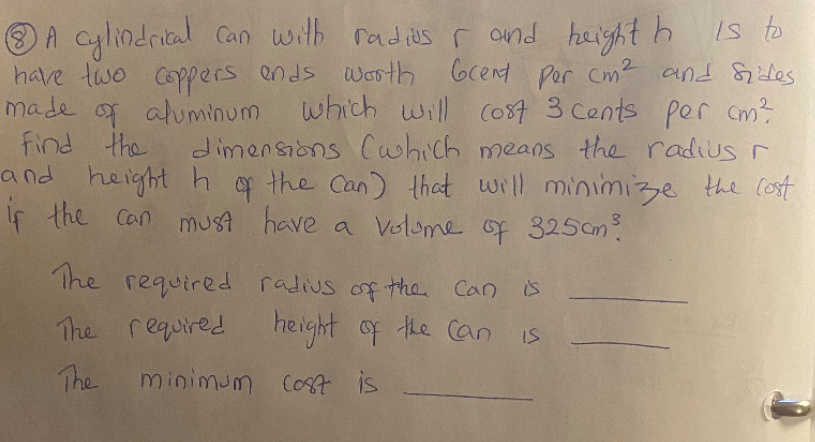 ⑧ A cylindrical can with radius r and height h is to
have two coppers ends worth 6cent per cm² and sides
made of aluminum which will cost 3 cents per cm².
Find the dimensions (which means the radius r
and height h of the can) that will minimize the cost
if the can must have a volume of 325cm³.
The required radius of the can is ______
The required height of the can is ______
The minimum cost is ______